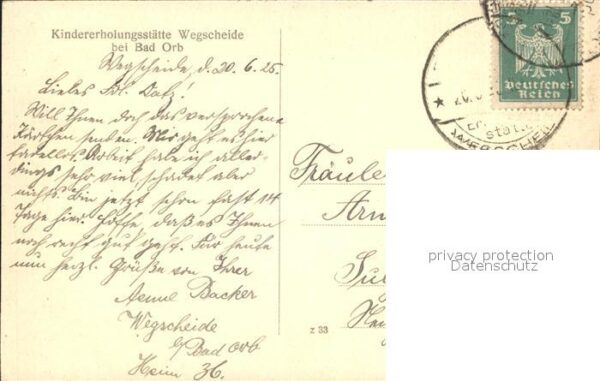 Kindererholungsstätte Wegscheide
bei Bad Orb
Wegscheide, d. 20.6.25.
Liebes Frl.
Will Ihnen doch das versprochene
Kärtchen senden. Mir geht es hier
tadellos. Arbeit habe ich aller-
dings sehr viel, schadet aber
nichts. Bin jetzt schon fast 14
Tage hier. Hoffe, daß es Ihnen
noch recht gut geht. Für heute
nun herzl. Grüße von Ihrer
Aenne Backer
Wegscheide
b/Bad Orb
Heim 36.
z 33
Fräule
5 5
Deutsches
Reich
privacy protection
Datenschutz